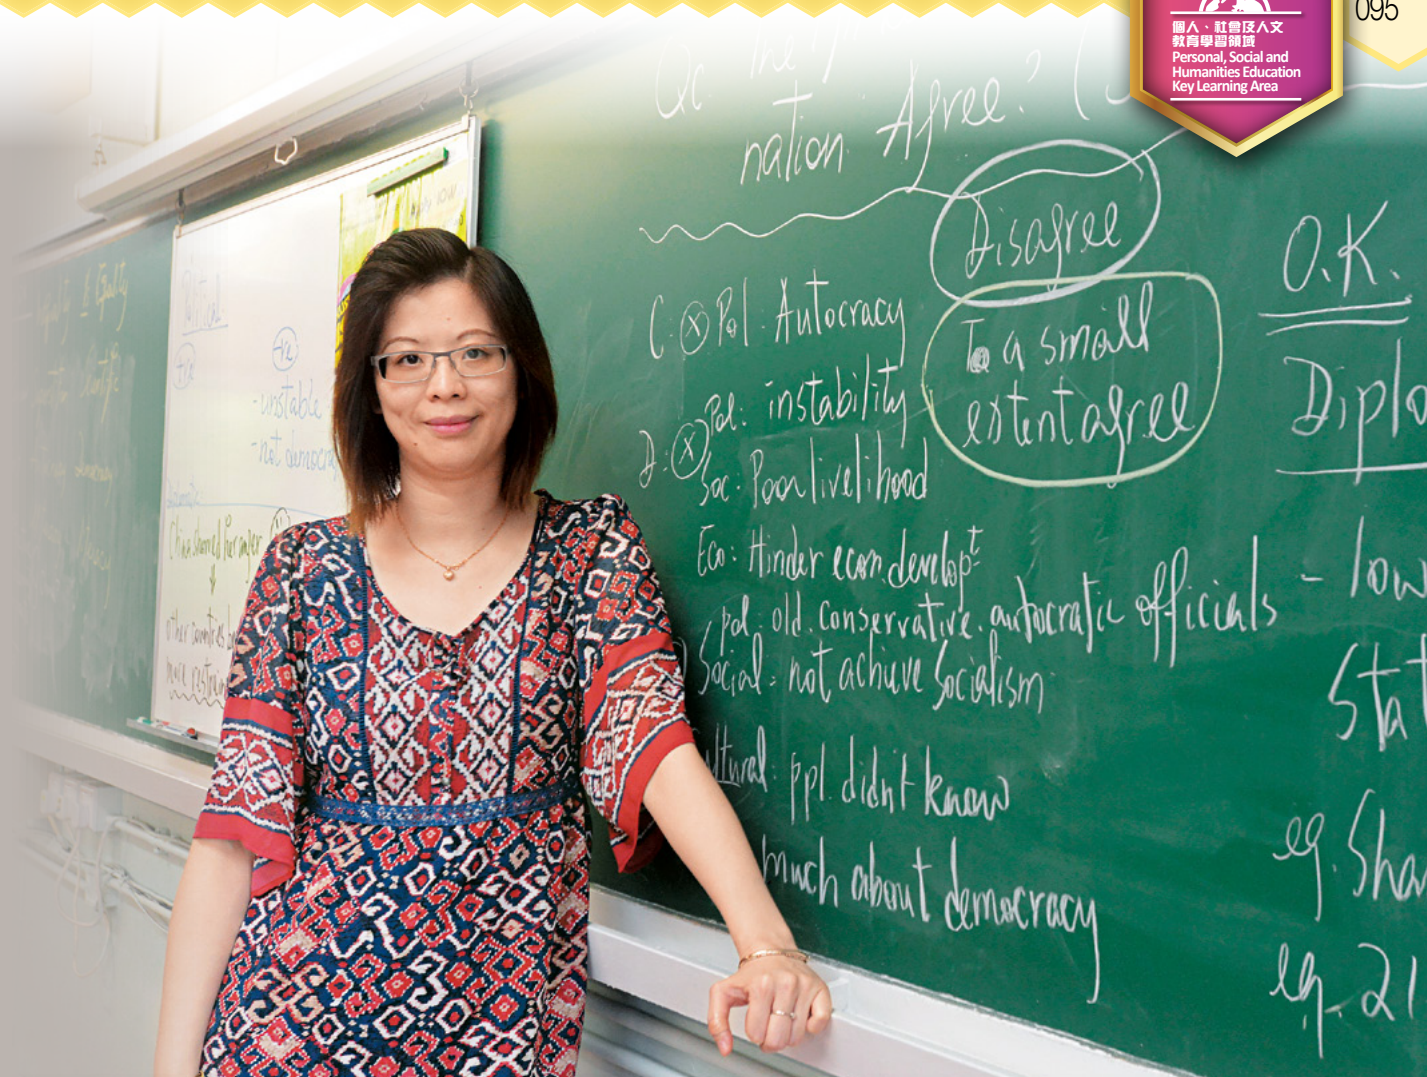 095
個人、社會及人文
教育學習領域
Personal, Social and
Humanities Education
Key Learning Area
Qc
the
nation Agree? (
Disagree
To a small
extent agree
C: (X) Pol: Autocracy
D: (X) Pol: instability
Soc: Poor livelihood
Eco: Hinder econ. developt
pol: old. conservative. autocratic officials
Social: not achieve Socialism
ltural: ppl. didn't know
much about democracy
O.K.
Diplo
- low
Stat
eg. Sha
eg. 21
Political
+ve
-ve
- unstable
- not democra
China showed her anger
other countries
more restrain
& Equality